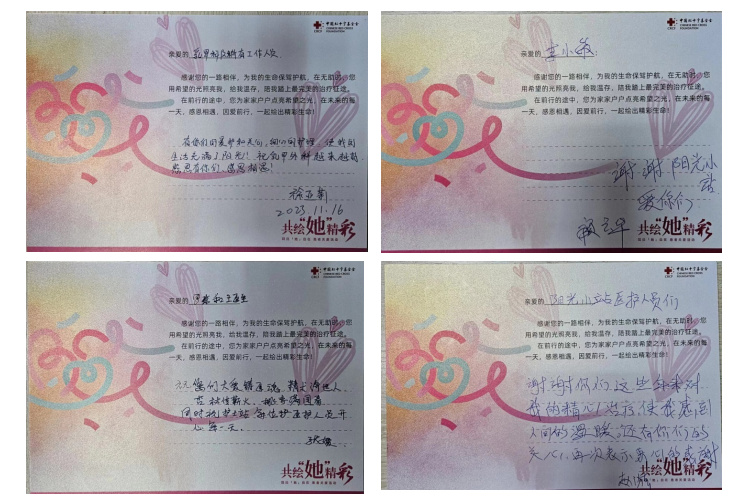 中国红十字基金会
CHINESE RED CROSS
FOUNDATION
CRCF
亲爱的 乳甲科 所有工作人员
感谢您的一路相伴，为我的生命保驾护航，在无助时，您
用希望的光照亮我，给我温存，陪我踏上最完美的治疗征途。
在前行的途中，您为家家户户点亮希望之光，在未来的每
一天，感恩相遇，因爱前行，一起绘出精彩生命！
有你们的爱护和关心，细心的护理，使我的
生活充满了阳光！祝乳甲外科越来越好
感恩有你们，感恩相遇！
2023.11.16
共绘“她”精彩
中国红十字基金会
CHINESE RED CROSS
FOUNDATION
CRCF
亲爱的 李小敏：
感谢您的一路相伴，为我的生命保驾护航，在无助时，您
用希望的光照亮我，给我温存，陪我踏上最完美的治疗征途。
在前行的途中，您为家家户户点亮希望之光，在未来的每
一天，感恩相遇，因爱前行，一起绘出精彩生命！
谢谢阳光小
站
爱你们
共绘“她”精彩
中国红十字基金会
CHINESE RED CROSS
FOUNDATION
CRCF
亲爱的
感谢您的一路相伴，为我的生命保驾护航，在无助时，您
用希望的光照亮我，给我温存，陪我踏上最完美的治疗征途。
在前行的途中，您为家家户户点亮希望之光，在未来的每
一天，感恩相遇，因爱前行，一起绘出精彩生命！
您们大爱铸医魂，精术得世人
同时祝 站每位护医护人员开
心每一天。
共绘“她”精彩
中国红十字基金会
CHINESE RED CROSS
FOUNDATION
CRCF
亲爱的 阳光小站医护人员们
感谢您的一路相伴，为我的生命保驾护航，在无助时，您
用希望的光照亮我，给我温存，陪我踏上最完美的治疗征途。
在前行的途中，您为家家户户点亮希望之光，在未来的每
一天，感恩相遇，因爱前行，一起绘出精彩生命！
谢谢你们，这些年来对
我的精心治疗，使我感到
人间的温暖，还有你们的
关心，再次表示衷心的感谢
共绘“她”精彩